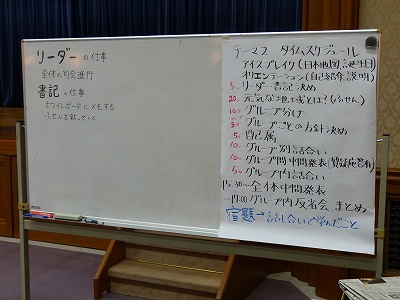 リーダーの仕事
全体の司会進行
書記の仕事
ホワイトボードにメモする
ふせんを貼っていく
テーマ2 タイムスケジュール
アイスブレイク(日本地図、誕生日)
オリエンテーション(自己紹介、説明)
5分 リーダー、書記決め
20分 元気な地域とは?(ふせん)
10分 グループ分け
グループごとの方針決め
5分 自己属
10分 グループ別話合い
10分 グループ間中間発表(質疑応答有)
5分 グループ内話合い
15:30〜全体中間発表
〜17:00 グループ内反省会、まとめ
宿題→話し合いで学んだこと